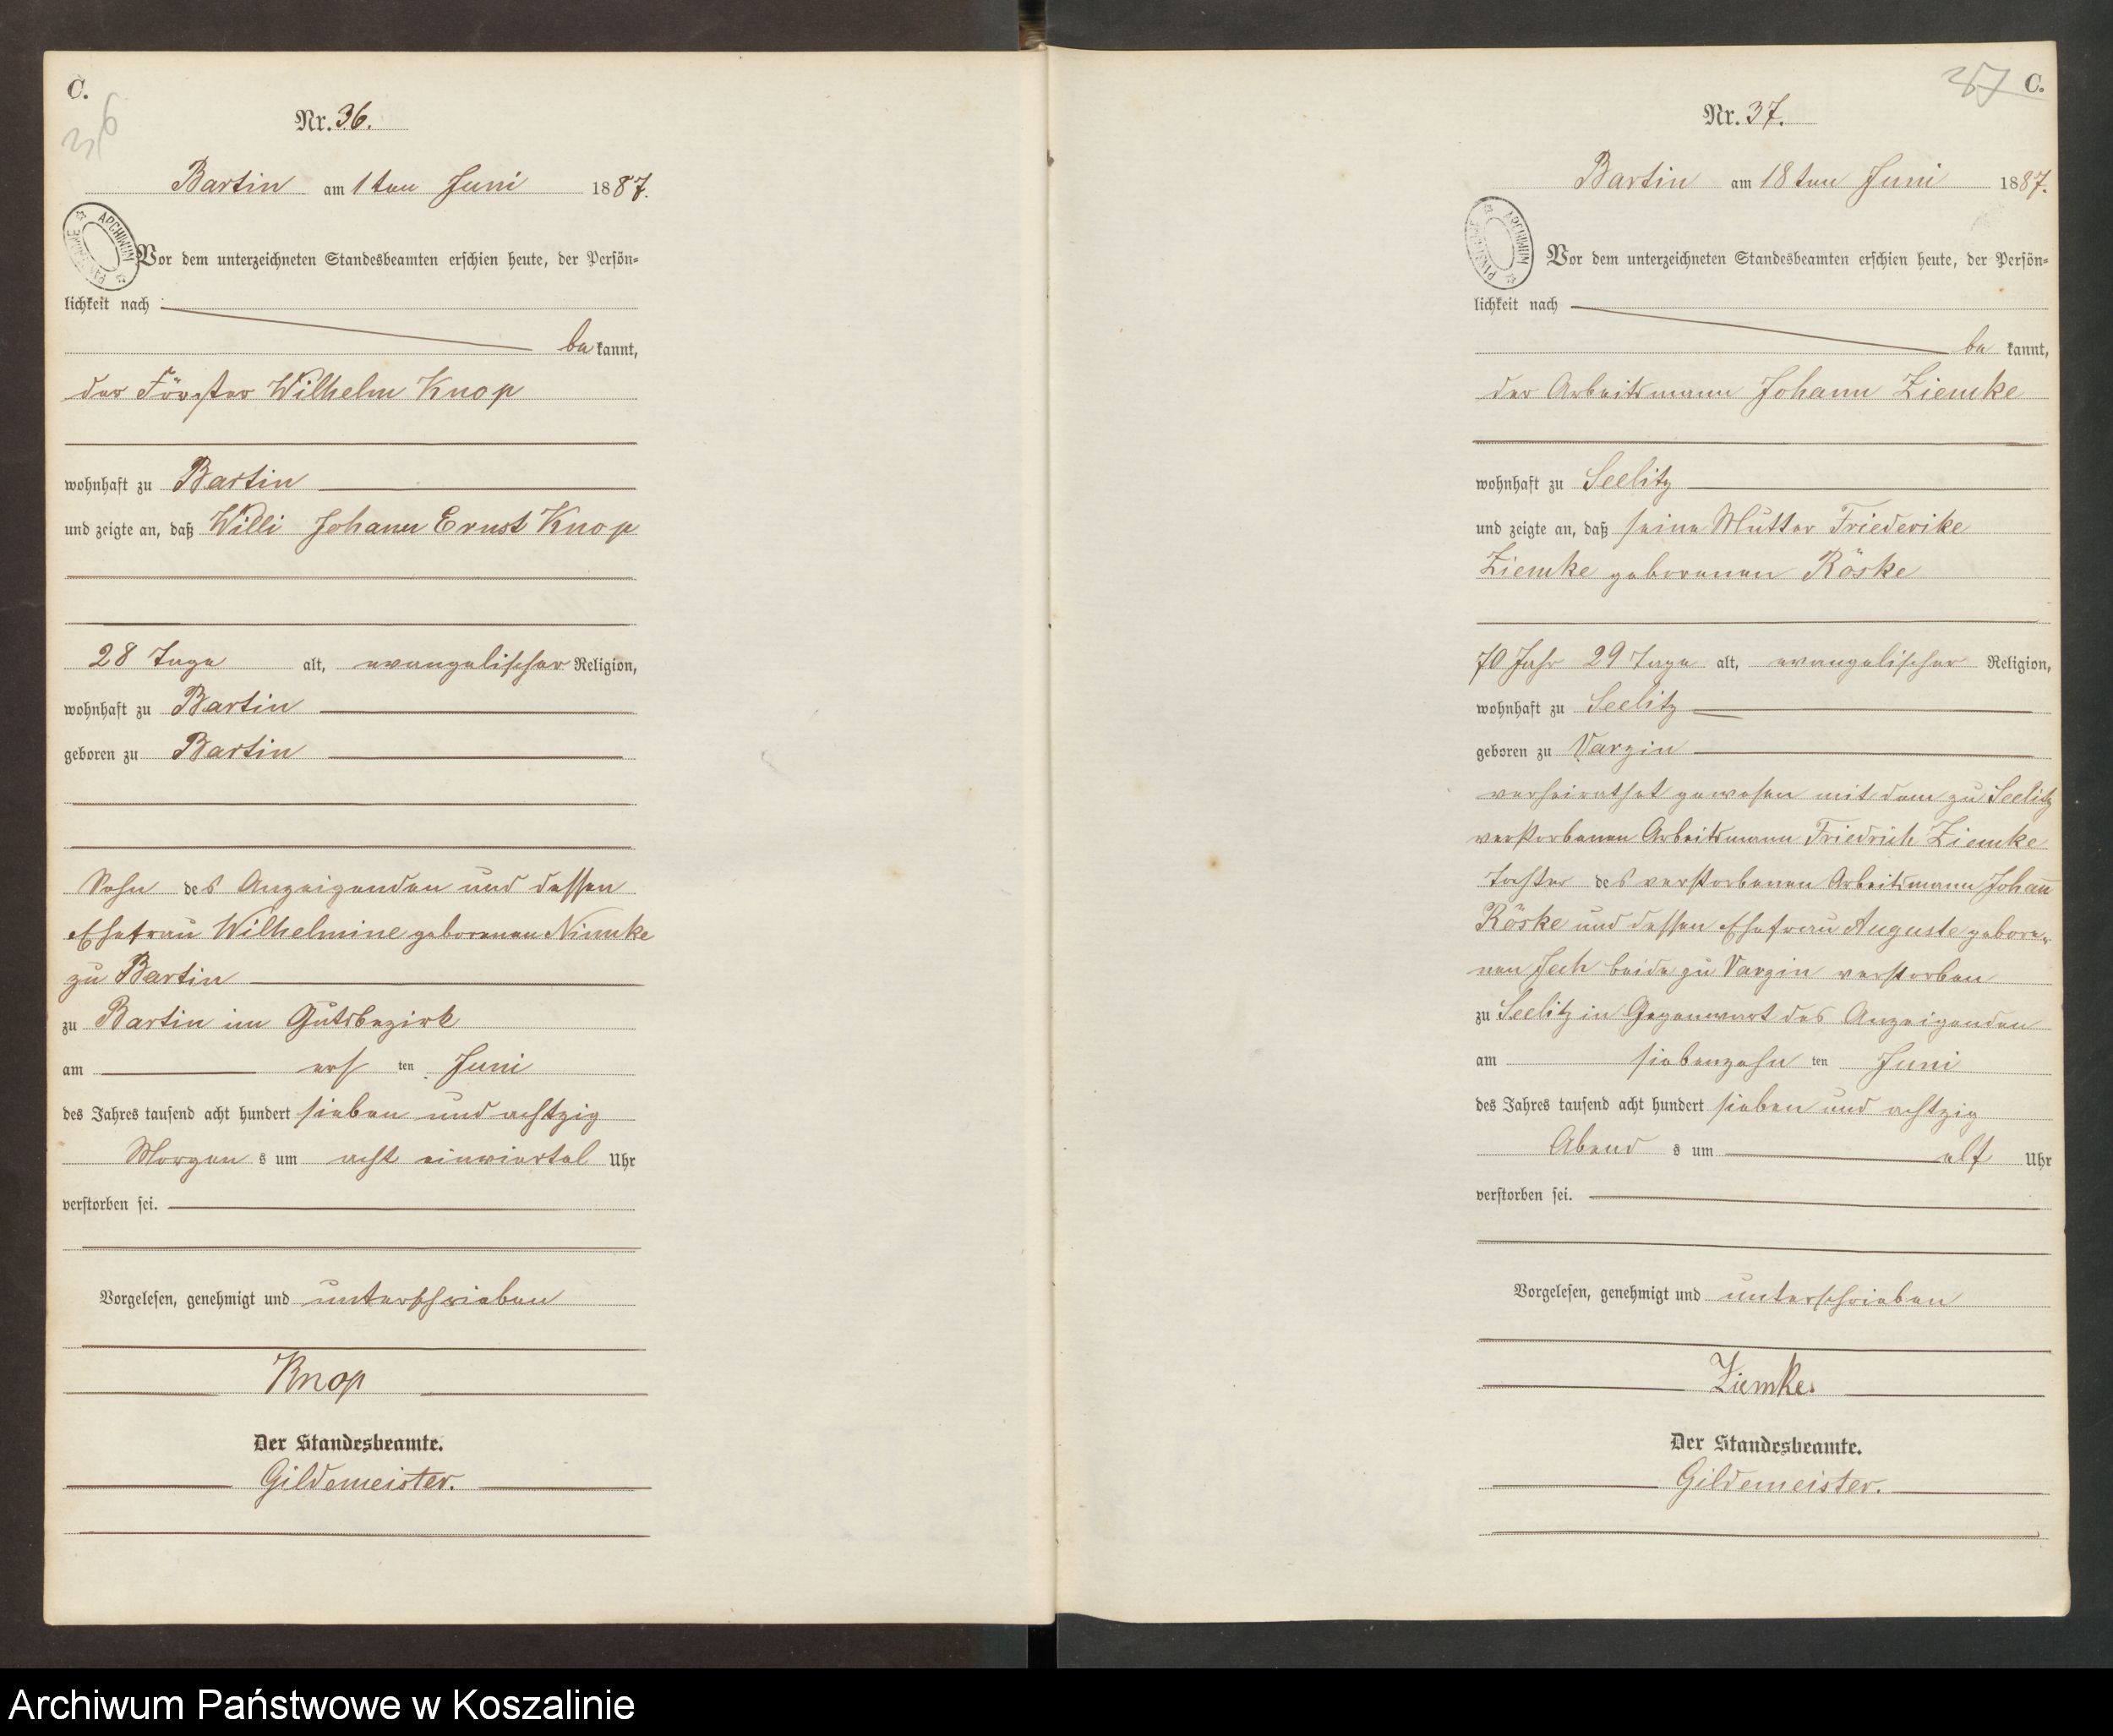 C.
36
Nr. 36.
Bartin am 1ten Juni 1887.
ARCHIWUM PAŃSTWOWE
Vor dem unterzeichneten Standesbeamten erschien heute, der Persön-
lichkeit nach
bekannt,
der Förster Wilhelm Knop
wohnhaft zu Bartin
und zeigte an, daß Willi Johann Ernst Knop
28 Tage alt, evangelischer Religion,
wohnhaft zu Bartin
geboren zu Bartin
Sohn des Anzeigenden und dessen
Ehefrau Wilhelmine geborenen Nimke
zu Bartin
zu Bartin im Gutsbezirk
am ersten Juni
des Jahres tausend acht hundert sieben und achtzig
Morgens um acht einviertel Uhr
verstorben sei.
Vorgelesen, genehmigt und unterschrieben
Knop
Der Standesbeamte.
Gildemeister.
37 C.
Nr. 37.
Bartin am 18ten Juni 1887.
ARCHIWUM PAŃSTWOWE
Vor dem unterzeichneten Standesbeamten erschien heute, der Persön-
lichkeit nach
bekannt,
der Arbeitsmann Johann Ziemke
wohnhaft zu Seelitz
und zeigte an, daß seine Mutter Friederike
Ziemke geborenen Röske
70 Jahr 29 Tage alt, evangelischer Religion,
wohnhaft zu Seelitz
geboren zu Varzin
verheirathet gewesen mit dem zu Seelitz
verstorbenen Arbeitsmann Friedrich Ziemke
Tochter des verstorbenen Arbeitsmann Johann
Röske und dessen Ehefrau Auguste gebore-
nen Jech beide zu Varzin verstorben
zu Seelitz in Gegenwart des Anzeigenden
am siebenzehnten Juni
des Jahres tausend acht hundert sieben und achtzig
Abends um elf Uhr
verstorben sei.
Vorgelesen, genehmigt und unterschrieben
Ziemke.
Der Standesbeamte.
Gildemeister.
Archiwum Państwowe w Koszalinie